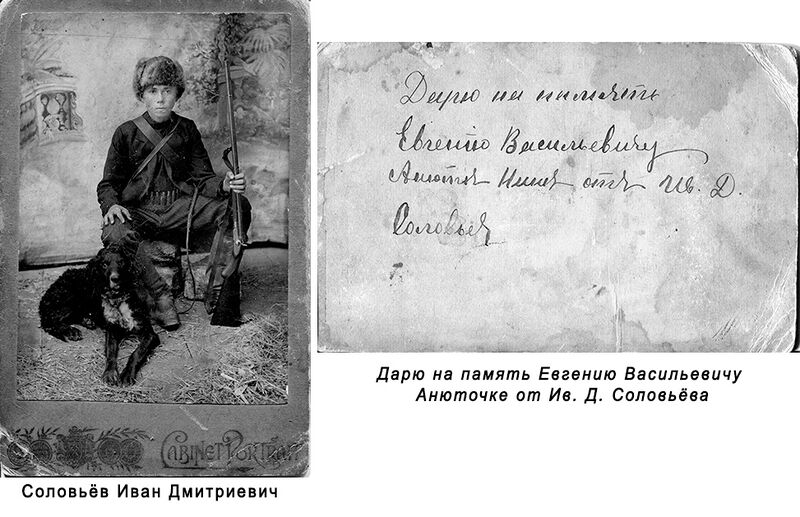 CABINET PORTRAIT
Соловьёв Иван Дмитриевич
Дарю на память
Евгенію Васильевичу
отъ Ив. Д.
Дарю на память Евгению Васильевичу
Анюточке от Ив. Д. Соловьёва